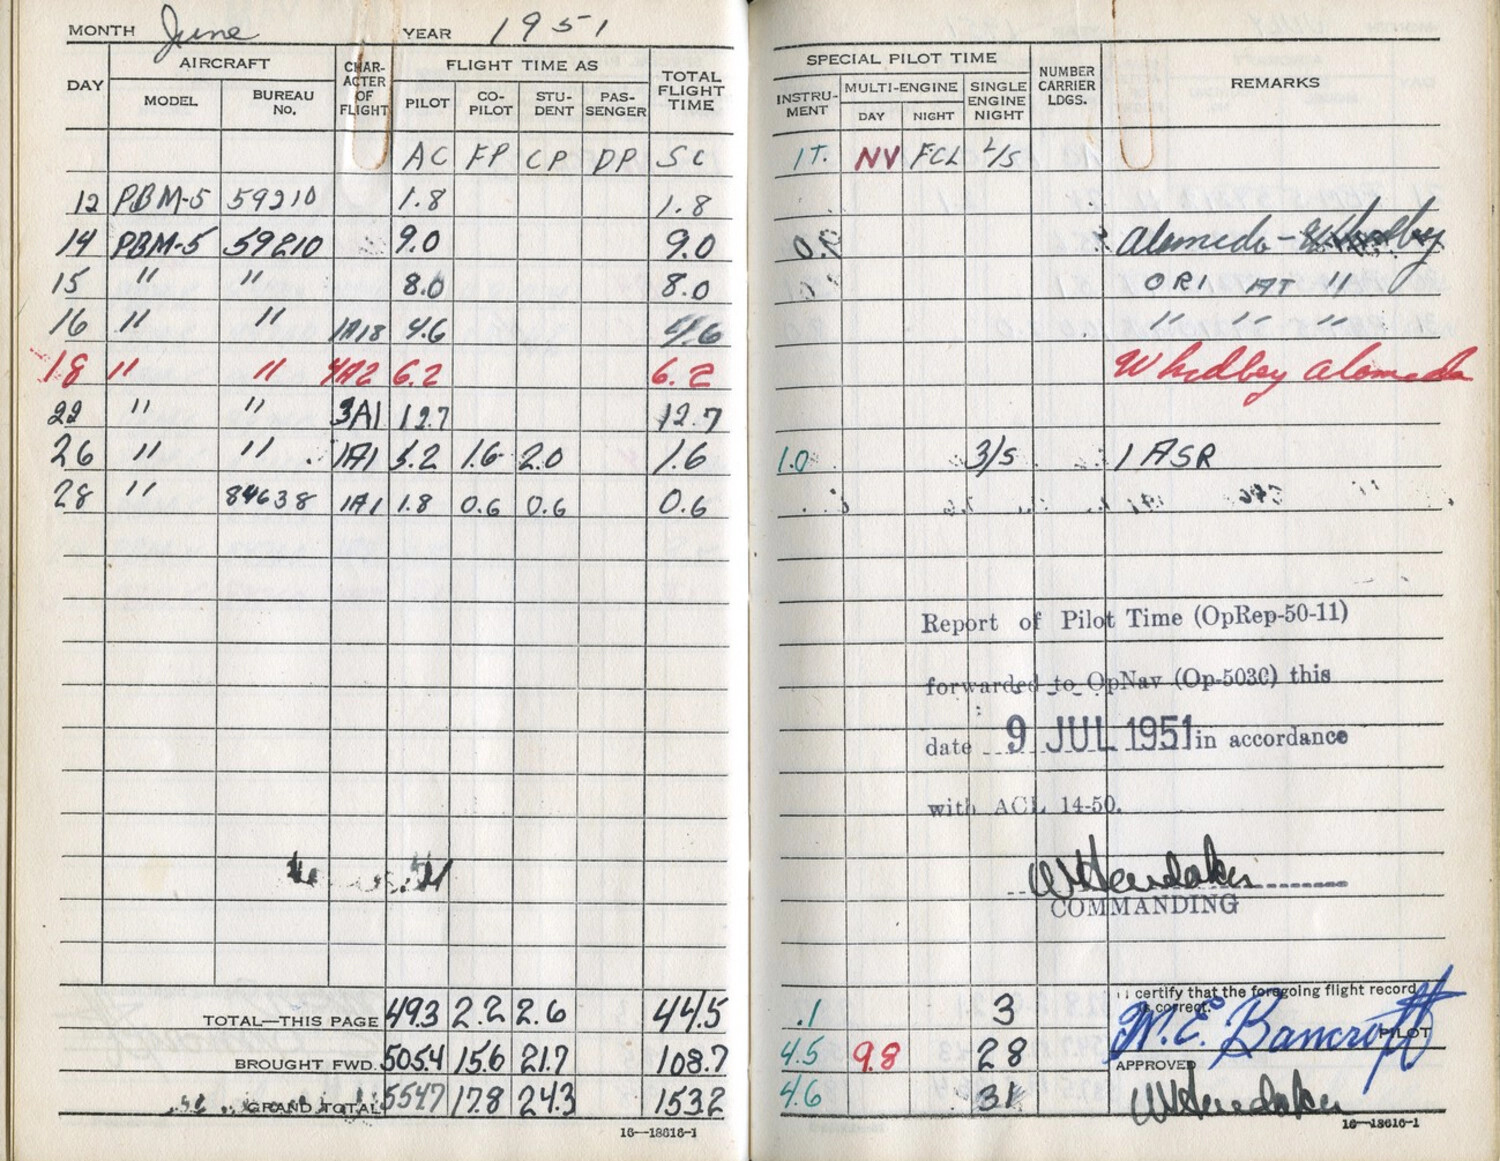 MONTH June YEAR 1951
DAY AIRCRAFT CHAR-ACTER OF FLIGHT FLIGHT TIME AS TOTAL FLIGHT TIME
MODEL BUREAU No. PILOT CO-PILOT STU-DENT PAS-SENGER
AC FP CP DP SC
12 PBM-5 59210 1.8 1.8
14 PBM-5 59210 9.0 9.0
15 " " 8.0 8.0
16 " " 1A18 4.6 4.6
18 " " 4A2 6.2 6.2
22 " " 3A1 12.7 12.7
26 " " 1A1 5.2 1.6 2.0 1.6
28 " 84638 1A1 1.8 0.6 0.6 0.6
TOTAL—THIS PAGE 49.3 2.2 2.6 44.5
BROUGHT FWD. 505.4 15.6 21.7 108.7
GRAND TOTAL 554.7 17.8 24.3 153.2
16—18616-1
SPECIAL PILOT TIME NUMBER CARRIER LDGS. REMARKS
INSTRU-MENT MULTI-ENGINE SINGLE ENGINE NIGHT
DAY NIGHT
IT. NV FCL L/S
Alameda - Whidbey
ORI AT "
" " "
Whidbey Alameda
1.0 3/5 1 ASR
Report of Pilot Time (OpRep-50-11)
forwarded to OpNav (Op-503C) this
date 9 JUL 1951 in accordance
with ACL 14-50.
COMMANDING
I certify that the foregoing flight record is correct.
.1 3
W. E. Bancroft PILOT
4.5 9.8 28
APPROVED
4.6 31
16—18616-1